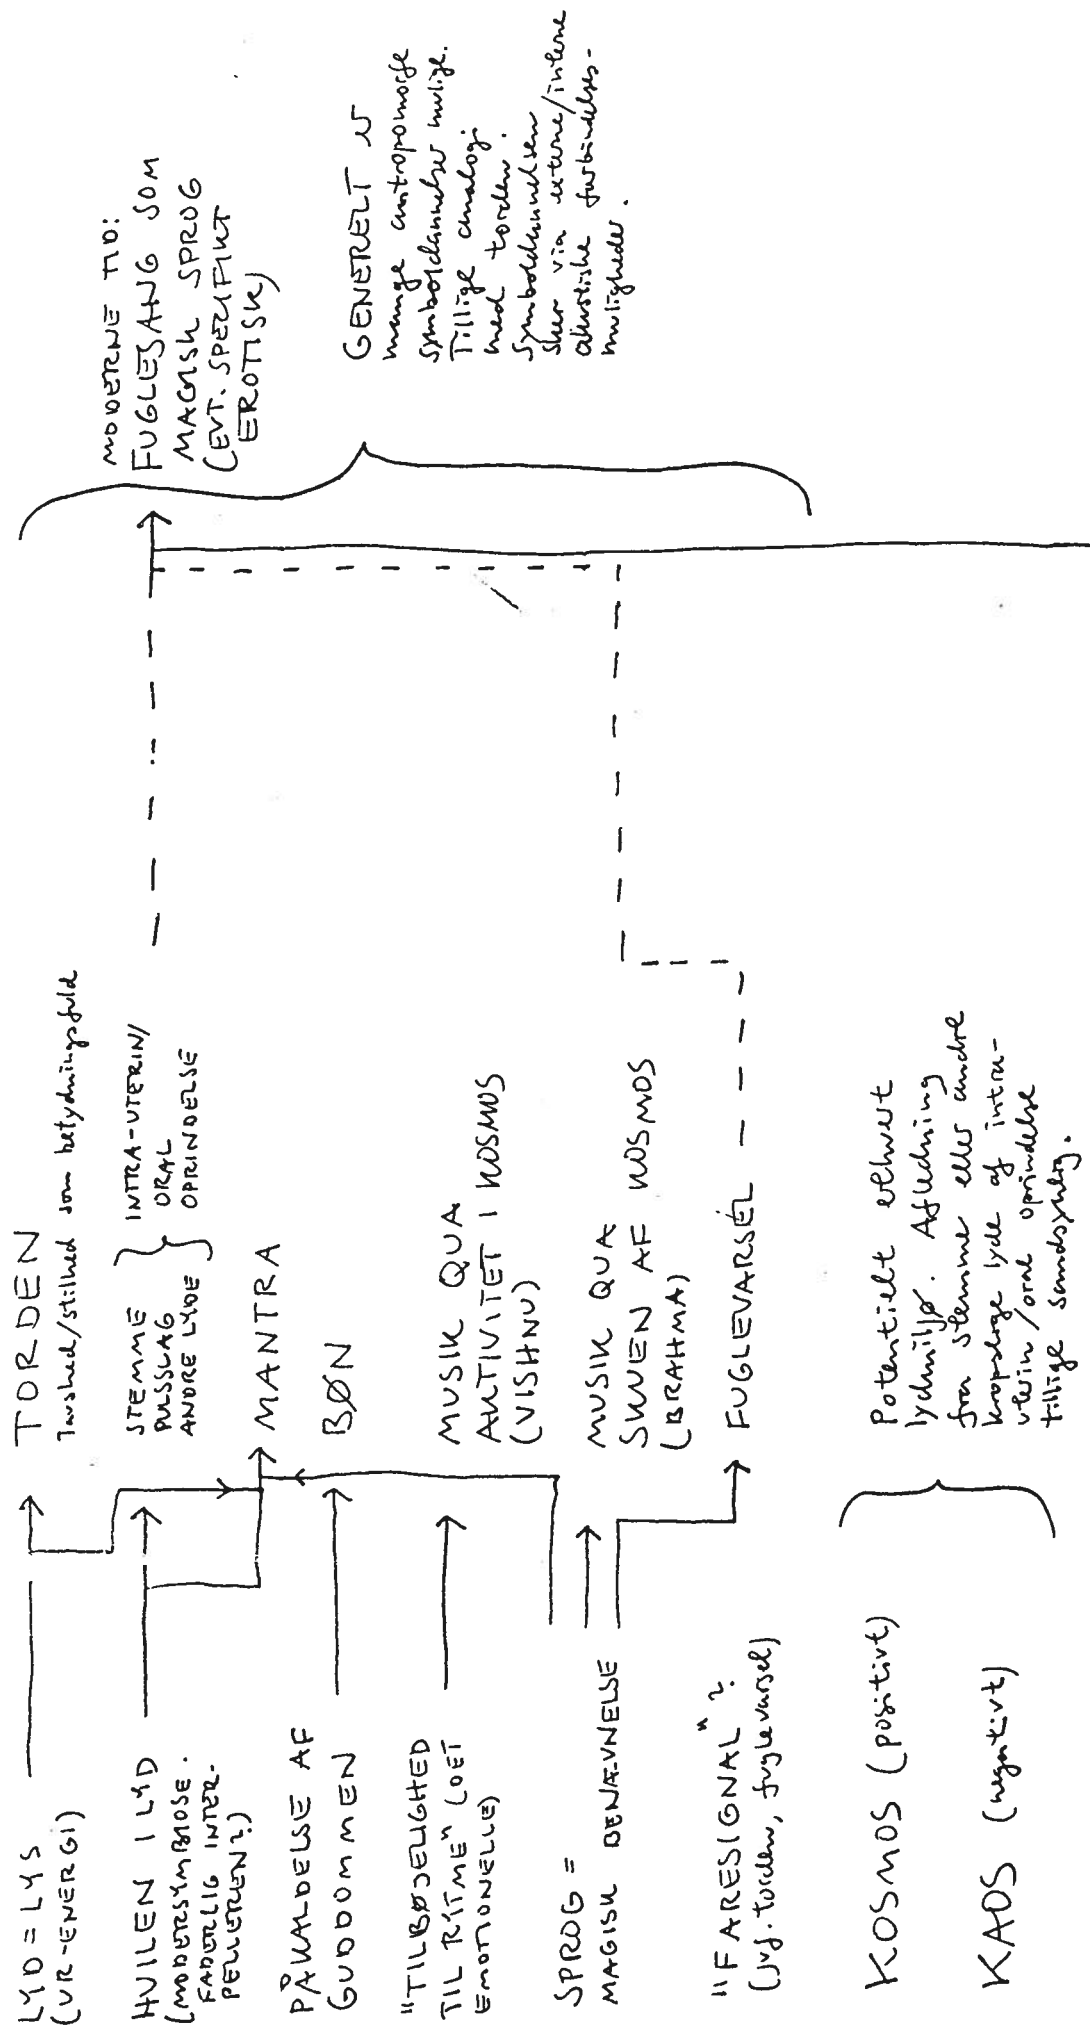 LYD = LYS
(UR-ENERGI)
HVILEN I LYD
(MODERSYMBIOSE.
FADERLIG INTER-
PELLEREN?)
PÅKALDELSE AF
GUDDOMMEN
"TILBØJELIGHED
TIL RYTME" (DET
EMOTIONELLE)
SPROG =
MAGISK BENÆVNELSE
"FARESIGNAL"?
(jvf. torden, fuglevarsel)
KOSMOS (positivt)
KAOS (negativt)
TORDEN
Tavshed/stilhed som betydningsfuld
STEMME
PULSSLAG
ANDRE LYDE
INTRA-UTERIN/
ORAL
OPRINDELSE
MANTRA
BØN
MUSIK QUA
AKTIVITET I KOSMOS
(VISHNU)
MUSIK QUA
SKUEN AF KOSMOS
(BRAHMA)
FUGLEVARSEL
Potentielt ethvert
lydmiljø. Afledning
fra stemme eller andre
kropslige lyde af intra-
uterin/oral oprindelse
tillige sandsynlig.
MODERNE TID:
FUGLESANG SOM
MAGISK SPROG
(EVT. SPECIFIKT
EROTISK)
GENERELT er
mange antropomorfe
symboldannelser mulige.
Tillige analogi
med torden.
Symboldannelsen
sker via externe/interne
akustiske forbindelses-
muligheder.